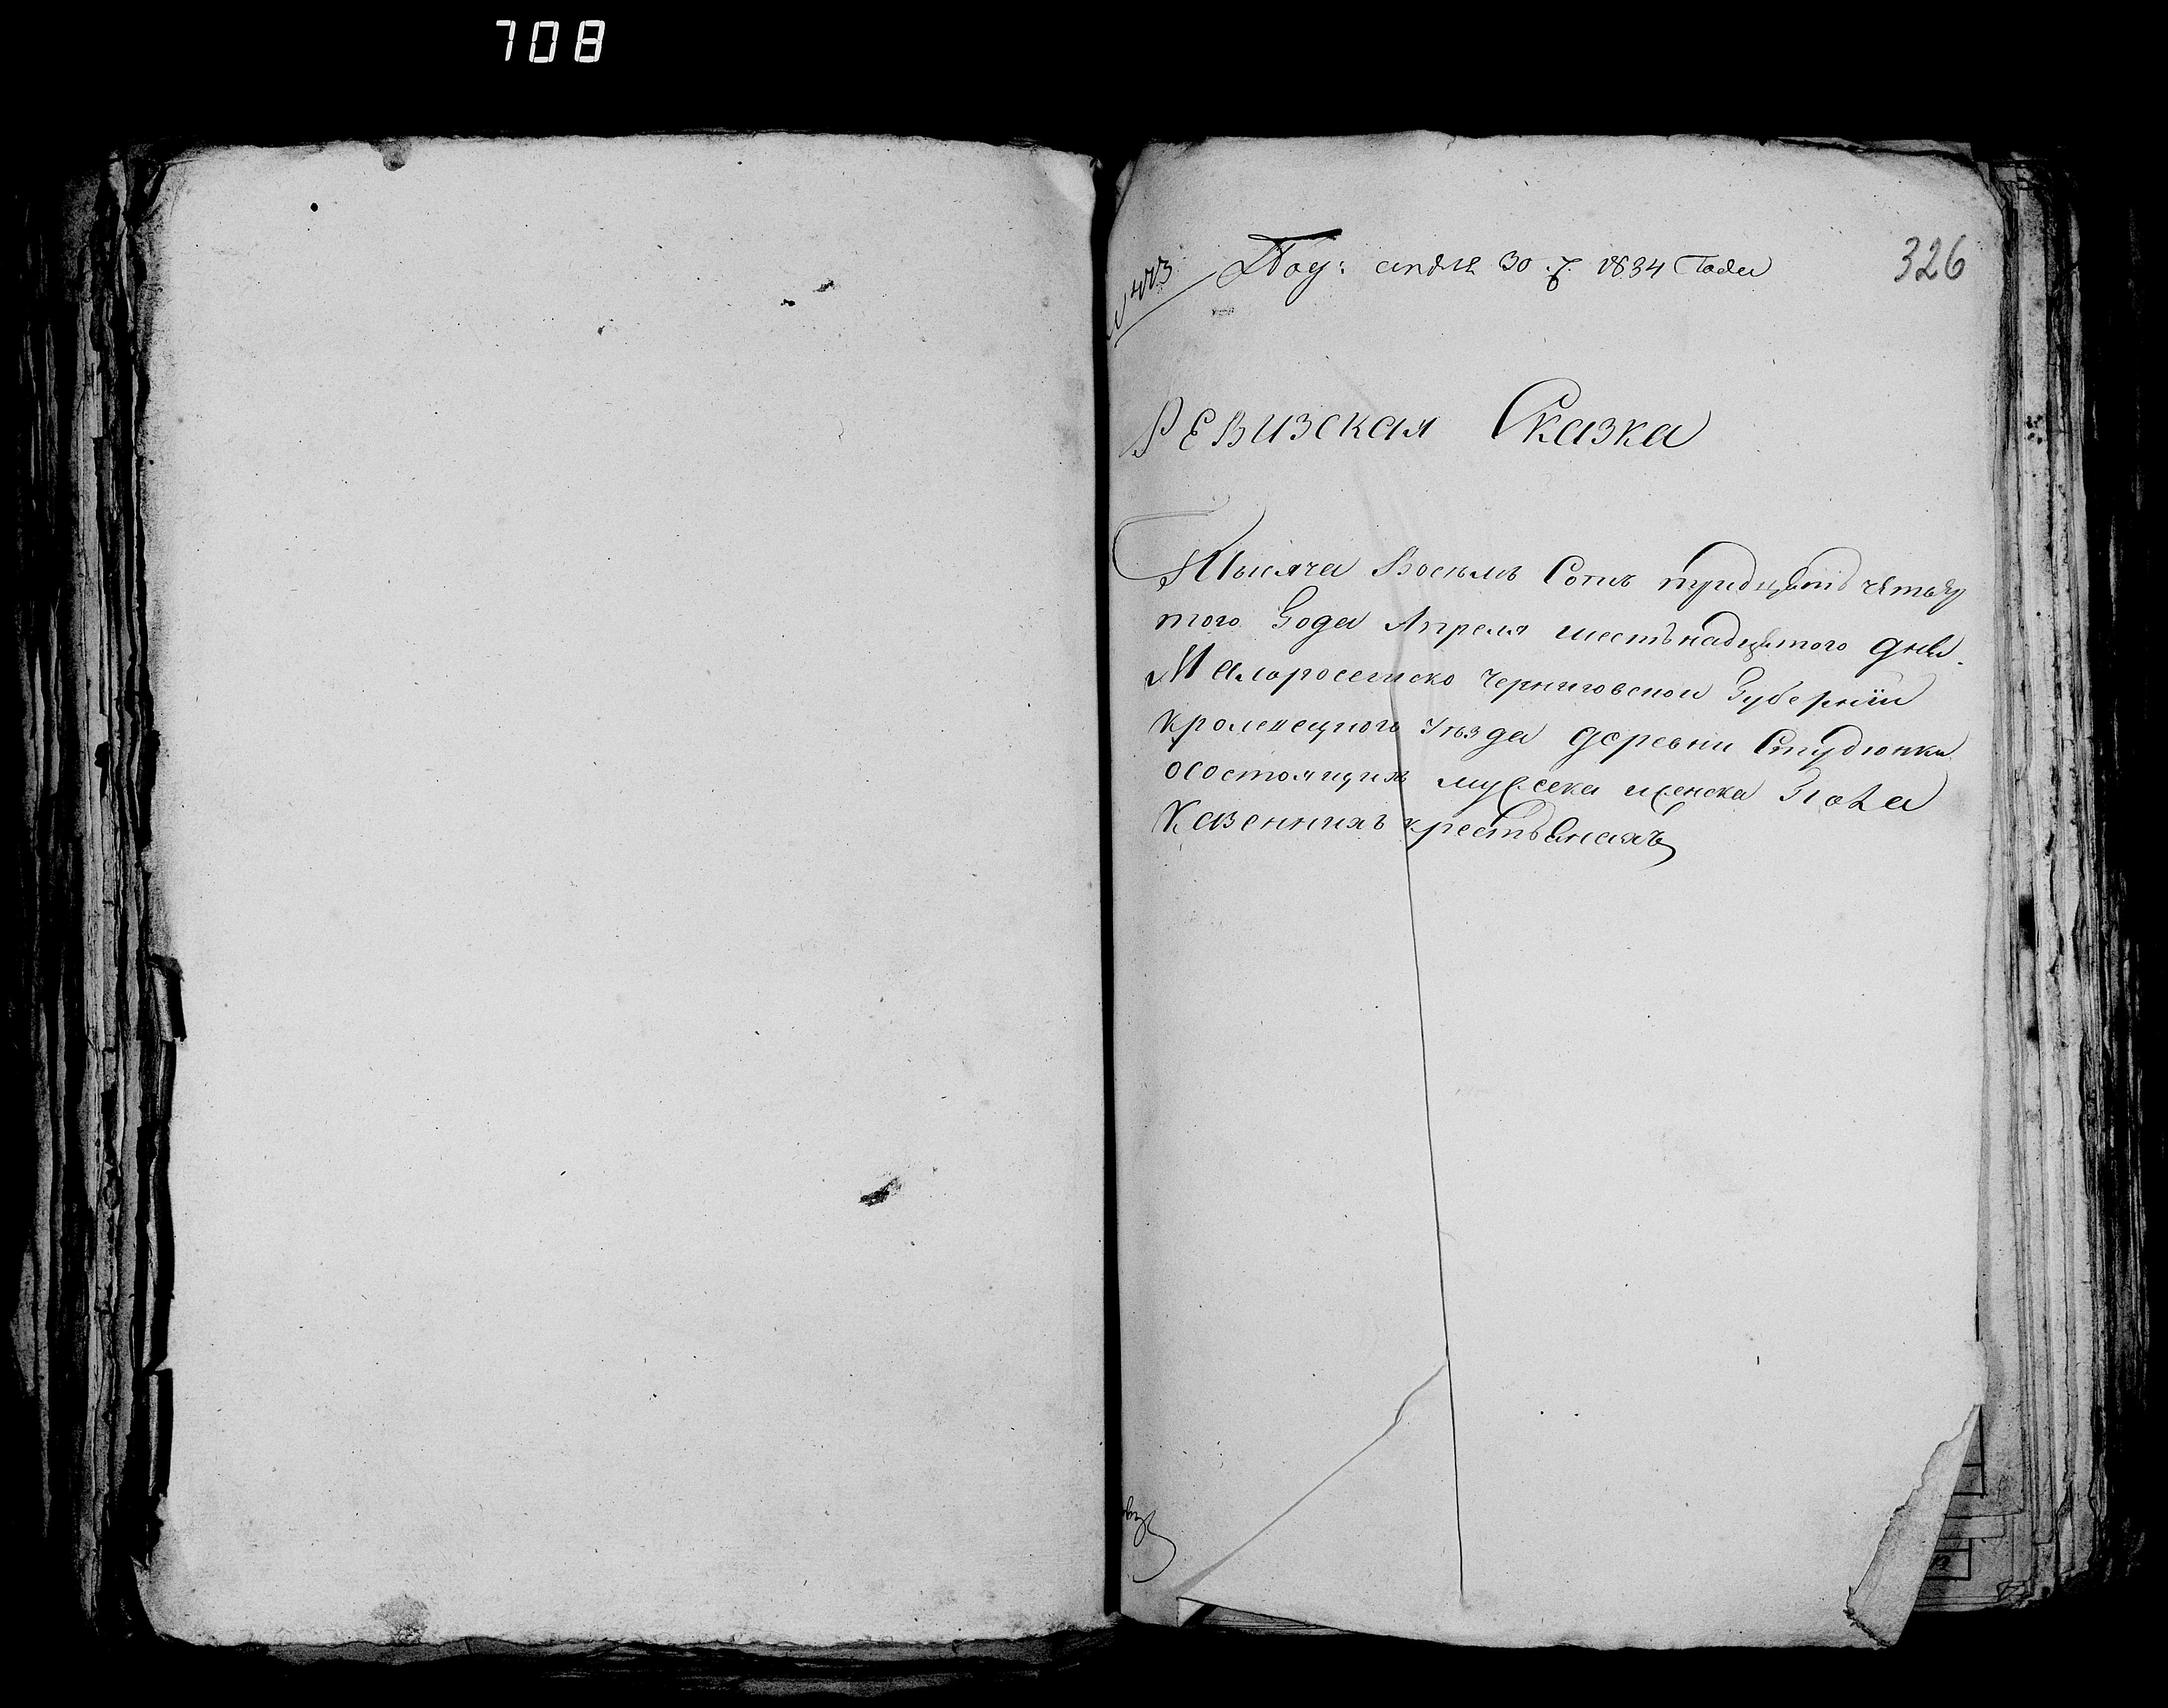 708
326
Под: апреля 30 д. 1834 Года
РЕВИЗСКАЯ Сказка
Тысяча Восемь Сотъ тридцать четвер
того Года Апреля шестьнадцатого дня
Малоросейско Черниговской Губерніи
кролевецкого уѣзда деревни Студюнки
осостоящихъ мужеска иженска Пола
Казеннихъ крестьянахъ